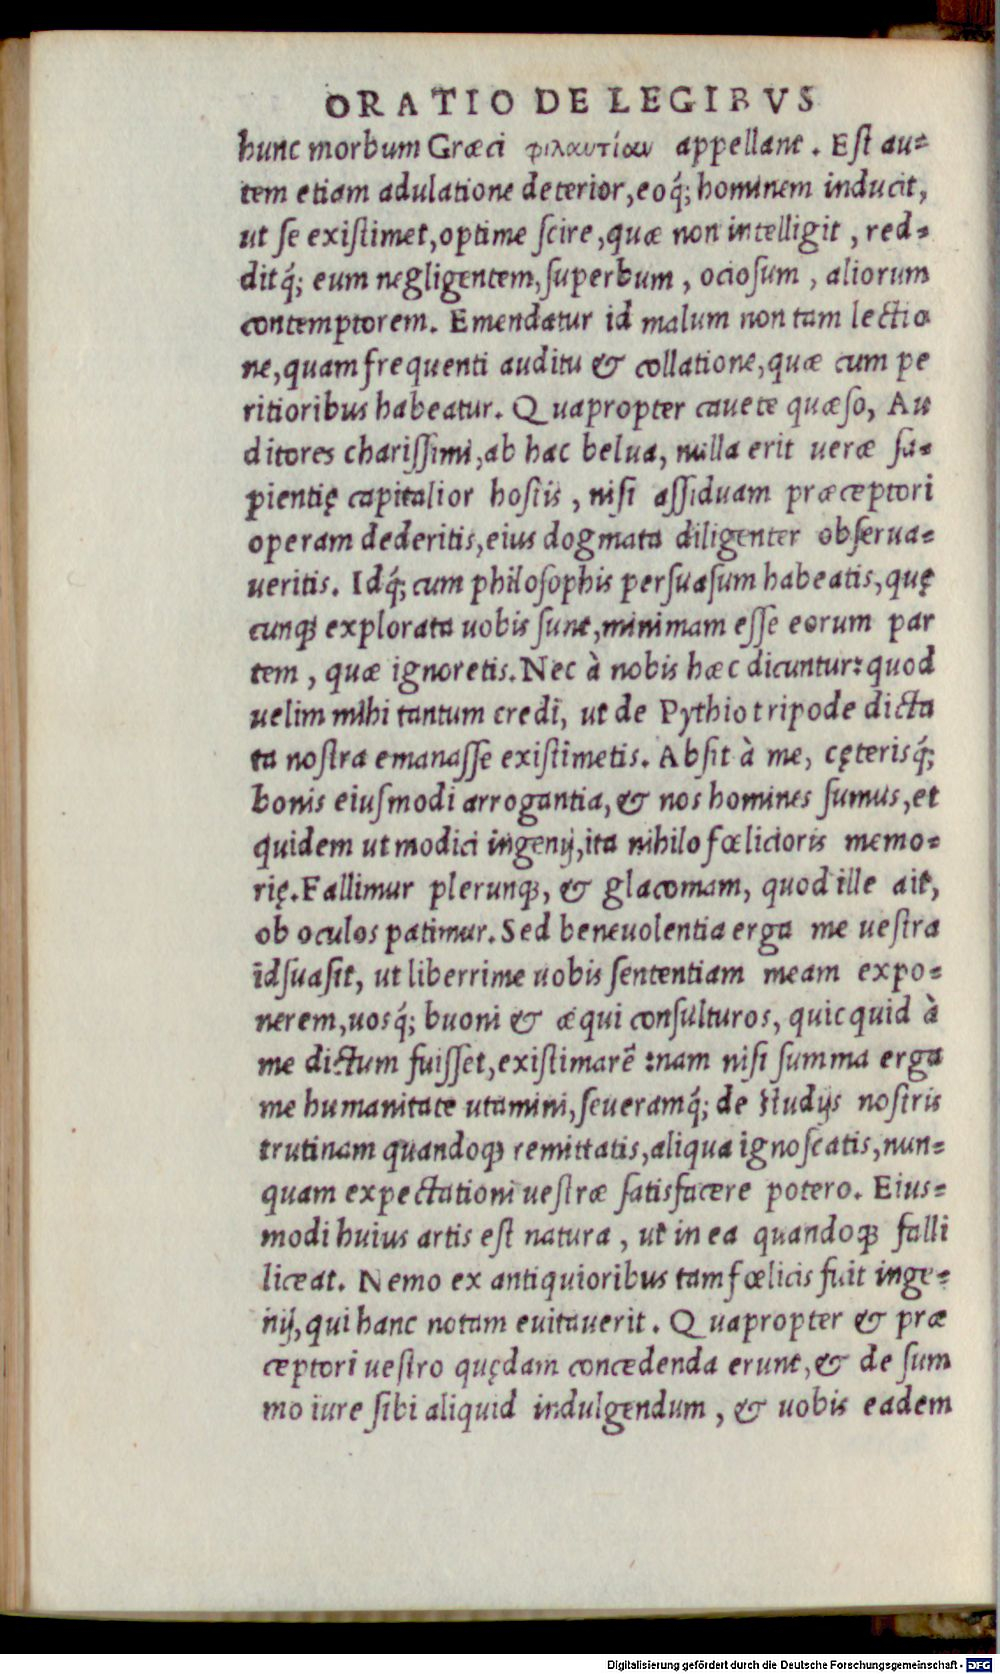 ORATIO DE LEGIBVS
hunc morbum Græci φιλαυτίαν appellant. Est au=
tem etiam adulatione deterior, eoq́; hominem inducit,
ut se existimet, optime scire, quæ non intelligit, red=
ditq́; eum negligentem, superbum, ociosum, aliorum
contemptorem. Emendatur id malum non tam lectio
ne, quam frequenti auditu & collatione, quæ cum pe
ritioribus habeatur. Quapropter cauete quæso, Au
ditores charissimi, ab hac belua, nulla erit ueræ sa=
pientię capitalior hostis, nisi assiduam præceptori
operam dederitis, eius dogmata diligenter obserua=
ueritis. Idq́; cum philosophis persuasum habeatis, quę
cunq; explorata uobis sunt, minimam esse eorum par
tem, quæ ignoretis. Nec à nobis hæc dicuntur: quod
uelim mihi tantum credi, ut de Pythio tripode dicta
ta nostra emanasse existimetis. Absit à me, cęterisq́;
bonis eiusmodi arrogantia, & nos homines sumus, et
quidem ut modici ingenij, ita nihilo fœlicioris memo=
rię. Fallimur plerunq;, & glacomam, quod ille ait,
ob oculos patimur. Sed beneuolentia erga me uestra
id suasit, ut liberrime uobis sententiam meam expo=
nerem, uosq́; buoni & æqui consulturos, quicquid à
me dictum fuisset, existimarē: nam nisi summa erga
me humanitate utamini, seueramq́; de studijs nostris
trutinam quandoq; remittatis, aliqua ignoscatis, nun=
quam expectationi uestræ satisfacere potero. Eius=
modi huius artis est natura, ut in ea quandoq; falli
liceat. Nemo ex antiquioribus tam fœlicis fuit inge=
nij, qui hanc notam euitauerit. Quapropter & præ
ceptori uestro quędam concedenda erunt, & de sum
mo iure sibi aliquid indulgendum, & uobis eadem
Digitalisierung gefördert durch die Deutsche Forschungsgemeinschaft - DFG